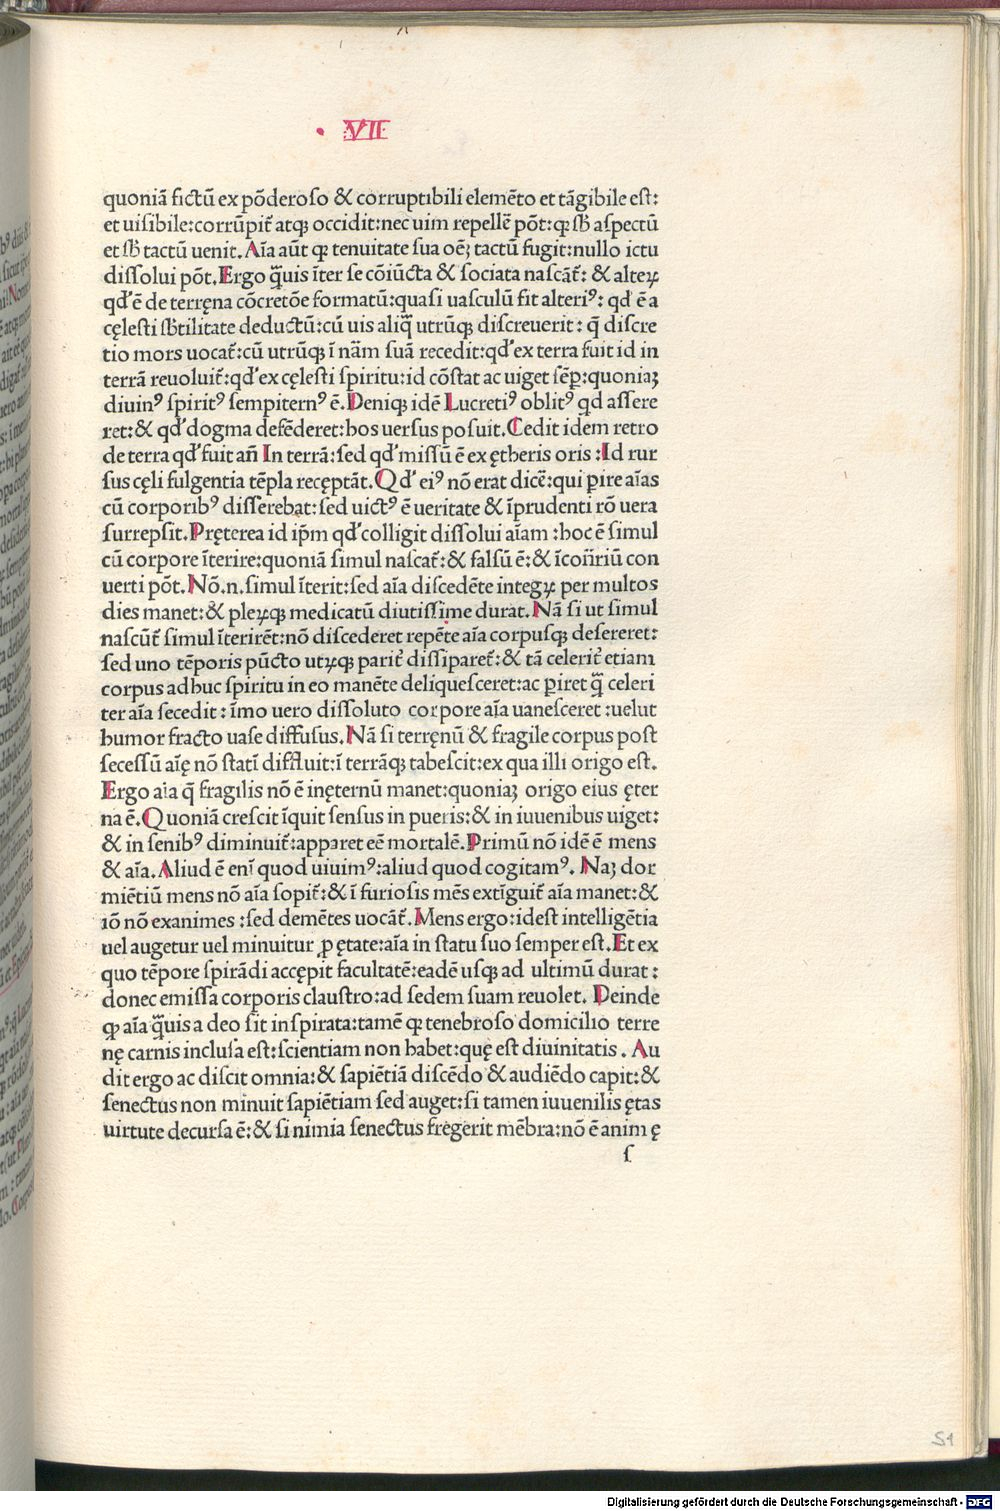 VII
quoniā fictū ex pōderoſo & corruptibili elemēto et tāgibile eſt:
et uiſibile:corrūpit᷑ atqꝫ occidit:nec uim repellē pōt:qꝫ ſb̄ aſpectū
et ſb̄ tactū uenit.Aīa aūt qꝫ tenuitate ſua oēꝫ tactū fugit:nullo ictu
diſſolui pōt.Ergo q̄uis īter ſe cōiūcta & ſociata naſcāt᷑: & alteꝝ
qd̓ ē de terręna cōcretōe formatū:quaſi uaſculū fit alteriꝰ: qd̓ ē a
cęleſti ſb̄tilitate deductū:cū uis aliq̄ utrūqꝫ diſcreuerit: q̄ diſcre
tio mors uocat᷑:cū utrūqꝫ ī nām ſuā recedit:qd̓ ex terra fuit id in
terrā reuoluit᷑:qd̓ ex cęleſti ſpiritu:id cōſtat ac uiget ſēꝑ:quoniaꝫ
diuinꝰ ſpiritꝰ ſempiternꝰ ē.Deniqꝫ idē Lucretiꝰ oblitꝰ qd aſſere
ret:& qd̓ dogma defēderet:hos uerſus poſuit.Cedit idem retro
de terra qd̓ fuit an̄ In terrā:ſed qd̓ miſſū ē ex ętheris oris :Id rur
ſus cęli fulgentia tēpla recęptāt.Qd̓ eiꝰ nō erat dicē:qui ꝑire aīas
cū corporibꝰ diſſerebat:ſed uictꝰ ē ueritate & īprudenti rō uera
ſurrepſit.Pręterea id ip̄m qd̓ colligit diſſolui aīam :hoc ē ſimul
cū corpore īterire:quoniā ſimul naſcat᷑:& falſū ē:& īcōn̄riū con
uerti pōt.Nō.n.ſimul īterit:ſed aīa diſcedēte integꝝ per multos
dies manet:& pleꝝqꝫ medicatū diutiſſime durat.Nā ſi ut ſimul
naſcūt᷑ ſimul īterirēt:nō diſcederet repēte aīa corpuſqꝫ deſereret:
ſed uno tēporis pūcto utꝝqꝫ parit᷑ diſſiparet᷑:& tā celerit᷑ etiam
corpus adhuc ſpiritu in eo manēte deliqueſceret:ac ꝑiret q̄ celeri
ter aīa ſecedit : īmo uero diſſoluto corpore aīa uaneſceret :uelut
humor fracto uaſe diffuſus.Nā ſi terręnū & fragile corpus poſt
ſeceſſū aīę nō ſtatī diffluit:ī terrāqꝫ tabeſcit:ex qua illi origo eſt.
Ergo aīa q̄ fragilis nō ē inęternū manet:quoniaꝫ origo eius ęter
na ē.Quoniā creſcit īquit ſenſus in pueris:& in iuuenibus uiget:
& in ſenibꝰ diminuit᷑:apparet eē mortalē.Primū nō idē ē mens
& aīa.Aliud ē enī quod uiuimꝰ:aliud quod cogitamꝰ. Naꝫ dor
miētiū mens nō aīa ſopit᷑:& ī furioſis mēs extīguit᷑ aīa manet:&
iō nō exanimes :ſed demētes uocāt᷑.Mens ergo:ideſt intelligētia
uel augetur uel minuitur ꝓ ętate:aīa in ſtatu ſuo ſemper eſt.Et ex
quo tēpore ſpirādi accępit facultatē:eadē uſqꝫ ad ultimū durat :
donec emiſſa corporis clauſtro:ad ſedem ſuam reuolet. Deinde
qꝫ aīa q̄uis a deo ſit inſpirata:tamē qꝫ tenebroſo domicilio terre
nę carnis incluſa eſt:ſcientiam non habet:quę eſt diuinitatis . Au
dit ergo ac diſcit omnia:& ſapiētiā diſcēdo & audiēdo capit:&
ſenectus non minuit ſapiētiam ſed auget:ſi tamen iuuenilis ętas
uirtute decurſa ē:& ſi nimia ſenectus fregerit mēbra:nō ē anim ę
ſ
51
Digitalisierung gefördert durch die Deutsche Forschungsgemeinschaft - DFG